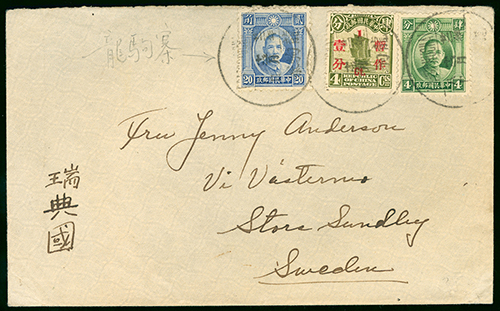 龍駒寨
貳 角
20 中華民國郵政 20
1
暫作
壹分
REPUBLIC
OF CHINA
POSTAGE
4 Cts
分 肆
4 中華民國郵政 4
Fru Jenny Anderson
Vi Västermo
Stora Sundby
Sweden
瑞
典
國